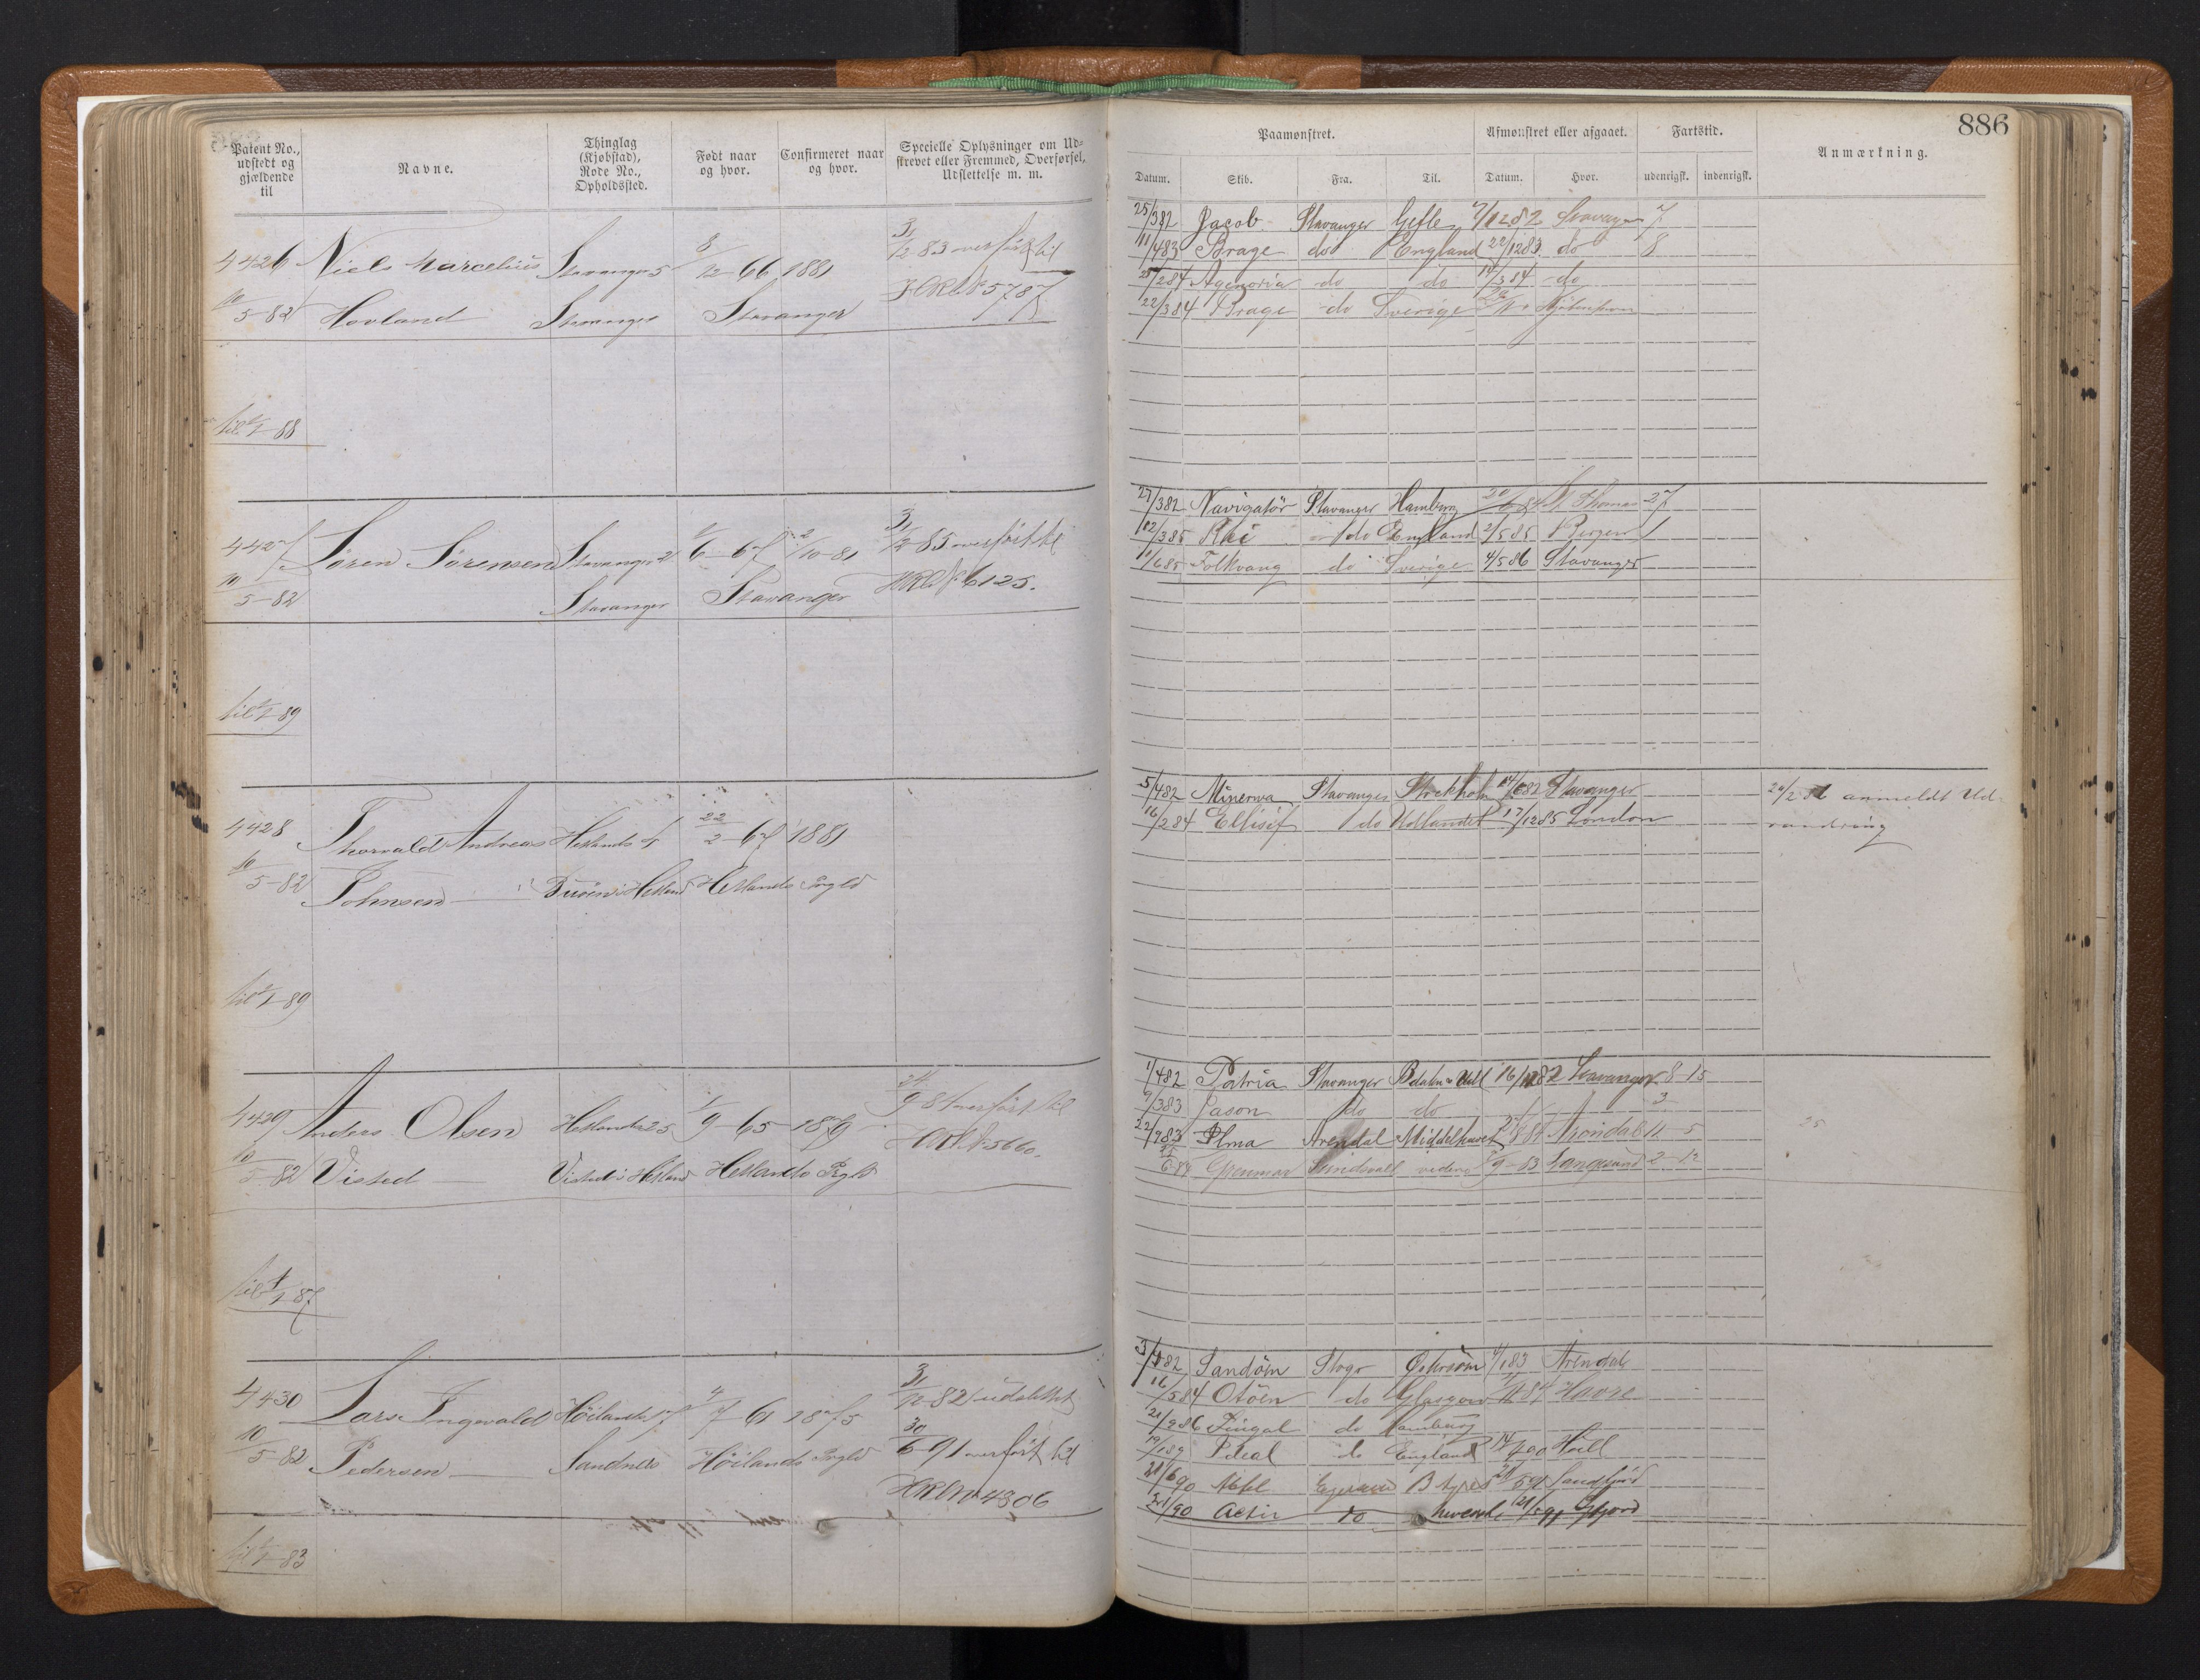 Patent No., udstedt og gjældende til
Navne.
Thinglag (Kjøbstad), Rode No., Opholdssted.
Født naar og hvor.
Confirmeret naar og hvor.
Specielle Oplysninger om Udskrevet eller Fremmed, Overførsel, Udslettelse m. m.
4426 Niels Marcelius Stavanger 5 8/12-66 1881 31/12-83 overført til
10/5-82 Hovland Stavanger Stavanger HRL N 5787
til 1/1-88
4427 Søren Sørensen Stavanger 2 6-67 2/10-81 31/12-85 overført til
10/5-82 Stavanger Stavanger HRL N 6125.
til 1/1-89
4428 Thorvald Andreas Hetlands 4 22/2-67 1881
10/5-82 Johnsen Buøen i Hetland Hetlands Prgld
til 1/1-89
4429 Anders Olsen Hetlands 25 1/9-65 1879 overført til
10/5-82 Visted Visted i Hetland Hetlands Prgld HRL N 5660.
til 1/1-87
4430 Lars Ingvald Høilands 17 7-61 1875 31/12-82 udslettet
10/5-82 Pedersen Sandnes Høilands Prgld 30/6-91 overført til
HRL N 4306
til 1/1-83
886
Paamønstret.
Afmønstret eller afgaaet.
Fartstid.
Anmærkning.
Datum. Skib. Fra. Til. Datum. Hvor. udenrigsk. indenrigsk.
25/3 82 Jacob Stavanger Gefle 7/12 82 Stavanger 7
11/4 83 Brage do England 22/12 83 do 8
25/2 84 Agenoria do do 14/3 84 do
22/3 84 Brage do Sverige Kjøbenhavn
27/3 82 Navigatør Stavanger Hamburg St Thomas 27
12/3 85 Rhi do England 2/5 85 Bergen 1
11/6 85 Folkvang do Sverige 4/5 86 Stavanger
5/4 82 Minerva Stavanger Stockholm 14/6 82 Stavanger 20/2 86 anmeldt Ud-
16/2 84 Ellisif do Udlandet 17/12 85 London vandring
1/4 82 Patria Stavanger 16/12 82 Stavanger 8-15
9/3 83 Jason do do 3
22/9 83 Alma Arendal Middelhavet Arendal 11-5 25
Grenmar Sundsvall videre 9-83 Langesund 2-12
3/4 82 Sandøen Stvgr 4/1 83 Arendal
16/5 84 Otøen do Glasgow Havre
21/9 86 Fingal do Hamburg
Ideal do England Hull
21/6 90 Egersund B Ayres Sandfjord
do